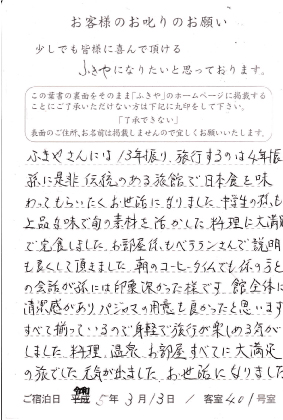 お客様のお叱りのお願い
少しでも皆様に喜んで頂ける
ふきやになりたいと思っております。
この葉書の裏面をそのまま「ふきや」のホームページに掲載する
ことにご了承いただけない方は下記に丸印をして下さい。
「了承できない」
表面のご住所、お名前は掲載しませんので宜しくお願いいたします。
ふきやさんには13年振り、旅行するのは4年振
孫に是非伝統のある旅館で日本食を味
わってもらいたくお世話になりました 中学生の孫も
上品な味で旬の素材を活かした料理に大満足
で完食しました お部屋係もベテランさんで説明
も良くして頂きました 朝のコーヒータイムでも係の方と
の会話が孫には印象深かった様です 館全体に
清潔感があり、パジャマの用意も良かったと思います
すべて揃っているので身軽で旅行が楽しめる気が
しました 料理、温泉 お部屋すべてに大満足
の旅でした 元気が出ました お世話になりました
ご宿泊日 令和 平成 5年 3月13日 / 客室401号室